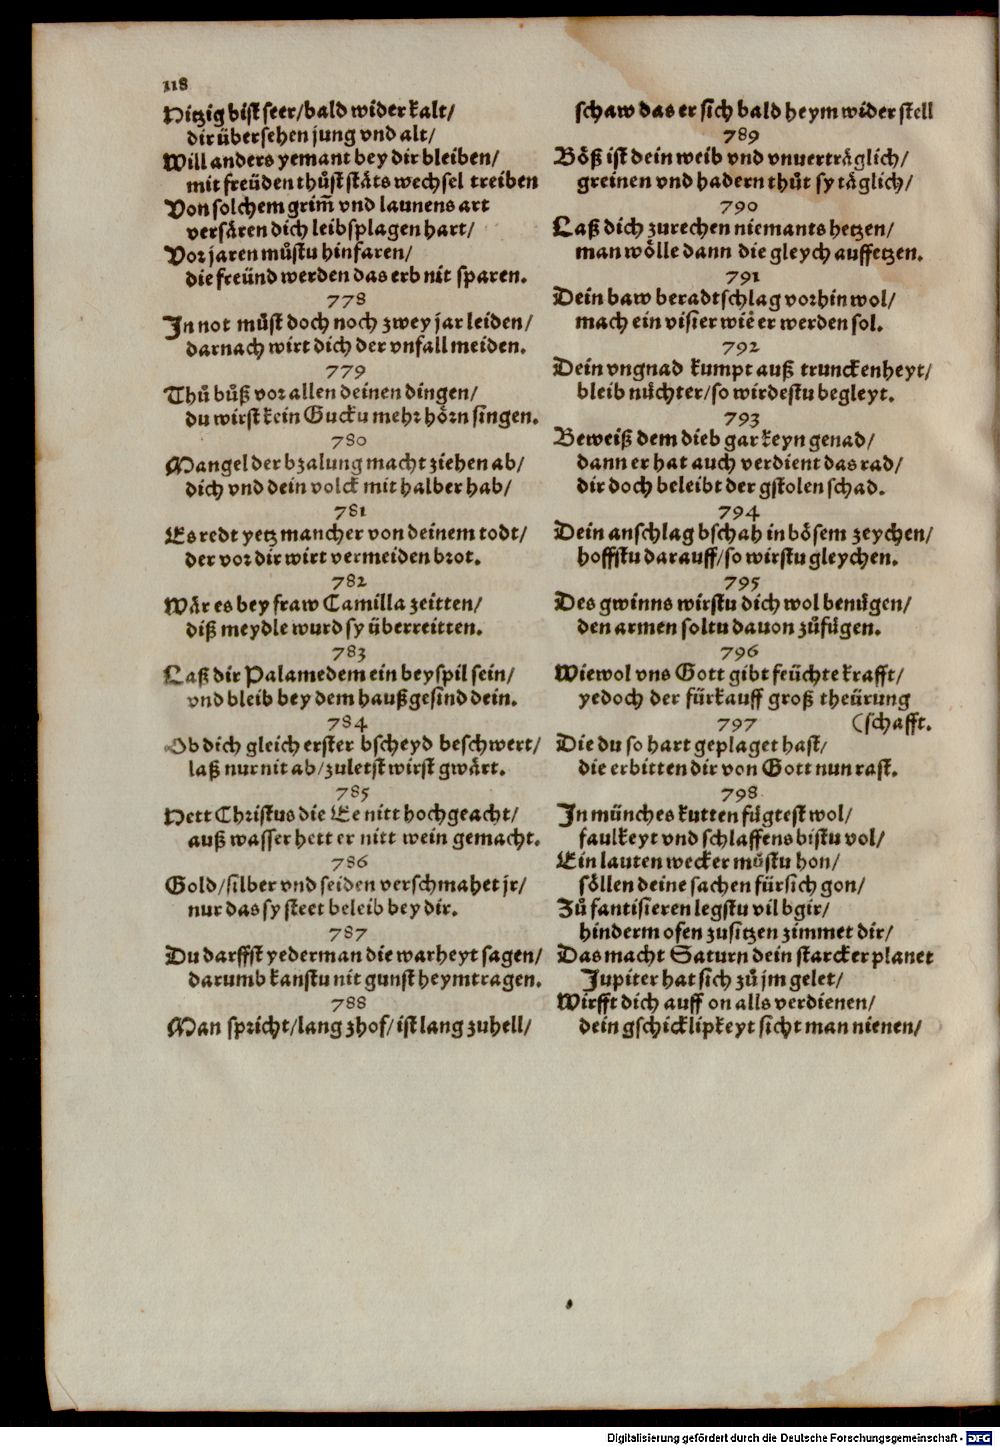 118
Hitzig bist seer/bald wider kalt/
dir übersehen jung vnd alt/
Will anders yemant bey dir bleiben/
mit freüden thůst stäts wechsel treiben
Von solchem grim̃ vnd launens art
versären dich leibsplagen hart/
Vor jaren můstu hinfaren/
die freünd werden das erb nit sparen.
778
In not můst doch noch zwey jar leiden/
darnach wirt dich der vnfall meiden.
779
Thů bůß vor allen deinen dingen/
du wirst kein Gucku mehr hörn singen.
780
Mangel der bzalung macht ziehen ab/
dich vnd dein volck mit halber hab/
781
Es redt yetz mancher von deinem todt/
der vor dir wirt vermeiden brot.
782
Wär es bey fraw Camilla zeitten/
diß meydle wurd sy überreitten.
783
Laß dir Palamedem ein beyspil sein/
vnd bleib bey dem haußgesind dein.
784
Ob dich gleich erster bscheyd beschwert/
laß nur nit ab/zuletst wirst gwärt.
785
Hett Christus die Ee nitt hochgeacht/
auß wasser hett er nitt wein gemacht.
786
Gold/silber vnd seiden verschmahet jr/
nur das sy steet beleib bey dir.
787
Du darffst yederman die warheyt sagen/
darumb kanstu nit gunst heymtragen.
788
Man spricht/lang zhof/ist lang zuhell/
schaw das er sich bald heym wider stell
789
Böß ist dein weib vnd vnuerträglich/
greinen vnd hadern thůt sy täglich/
790
Laß dich zurechen niemants hetzen/
man wölle dann die gleych auffetzen.
791
Dein baw beradtschlag vorhin wol/
mach ein visier wie er werden sol.
792
Dein vngnad kumpt auß trunckenheyt/
bleib nüchter/so wirdestu begleyt.
793
Beweiß dem dieb gar keyn genad/
dann er hat auch verdient das rad/
dir doch beleibt der gstolen schad.
794
Dein anschlag bschah in bösem zeychen/
hoffstu darauff/so wirstu gleychen.
795
Des gwinns wirstu dich wol benügen/
den armen soltu dauon zůfügen.
796
Wiewol vns Gott gibt feüchte krafft/
yedoch der fürkauff groß theürung
797 (schafft.
Die du so hart geplaget hast/
die erbitten dir von Gott nun rast.
798
In münches kutten fügtest wol/
faulkeyt vnd schlaffens bistu vol/
Ein lauten wecker můstu hon/
söllen deine sachen fürsich gon/
Zů fantisieren legstu vil bgir/
hinderm ofen zusitzen zimmet dir/
Das macht Saturn dein starcker planet
Jupiter hat sich zů jm gelet/
Wirfft dich auff on alls verdienen/
dein gschicklipkeyt sicht man nienen/
Digitalisierung gefördert durch die Deutsche Forschungsgemeinschaft - DFG